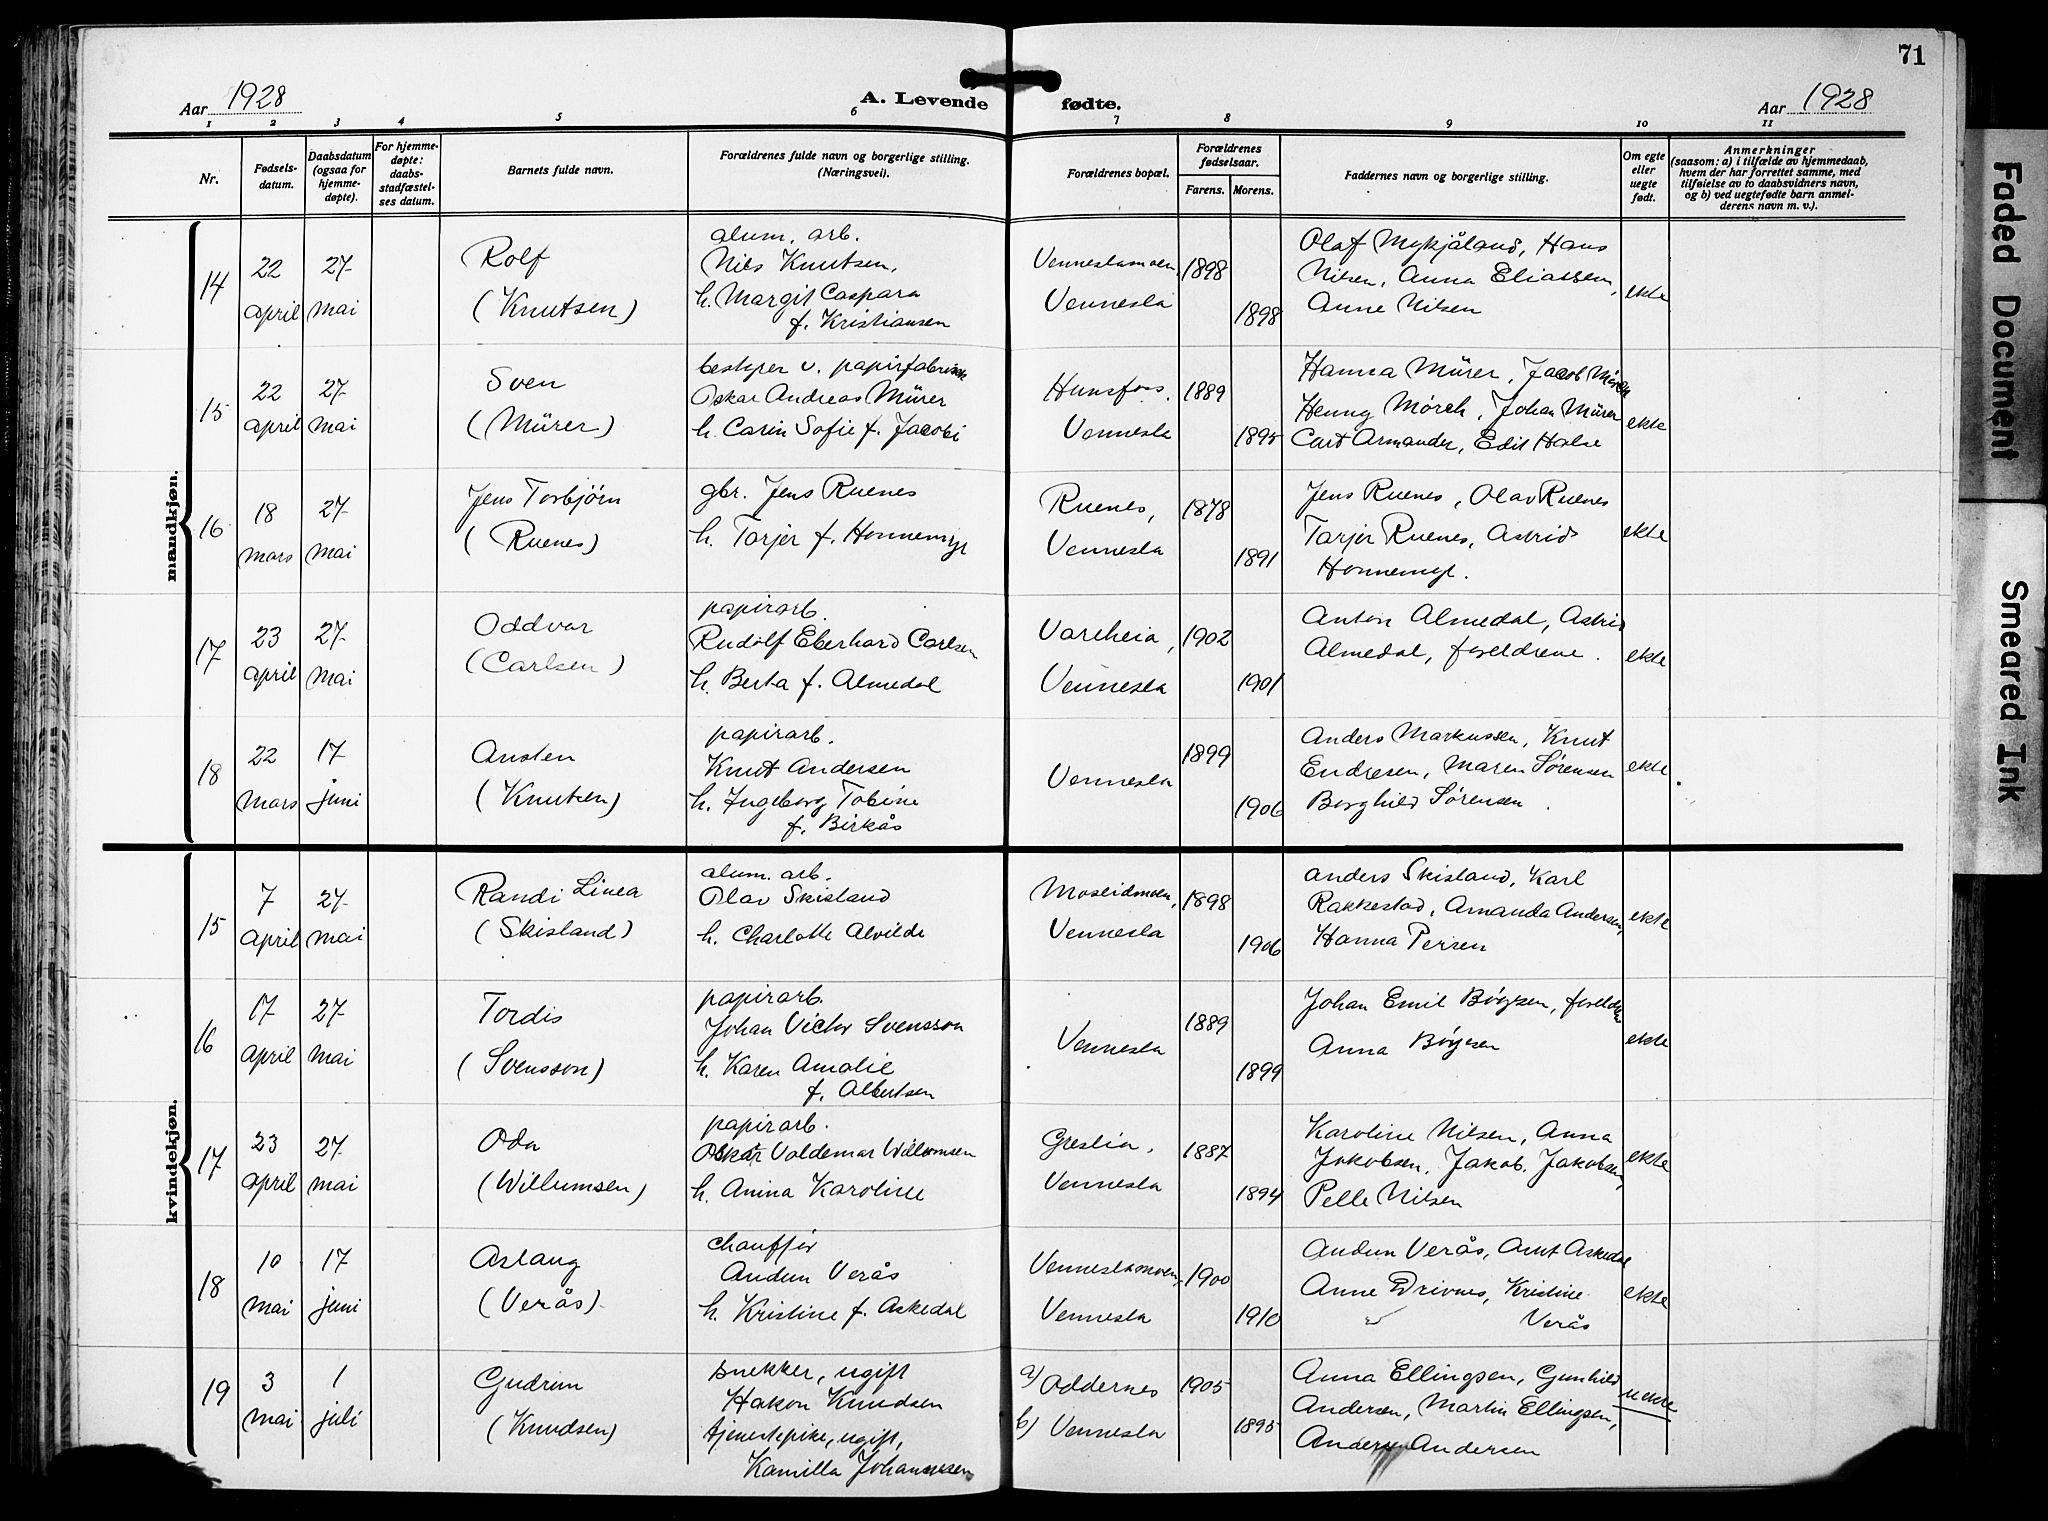 71
Aar 1928
A. Levende fødte.
Aar 1928
1 2 3 4 5 6 7 8 9 10 11
Nr.
Fødsels-
datum.
Daabsdatum
(ogsaa for
hjemme-
døpte).
For hjemme-
døpte:
daabs-
stadfæstel-
ses datum.
Barnets fulde navn.
Forældrenes fulde navn og borgerlige stilling.
(Næringsvei).
Forældrenes bopæl.
Forældrenes
fødselsaar.
Farens. Morens.
Faddernes navn og borgerlige stilling.
Om egte
eller
uegte
født.
Anmerkninger
(saasom: a) i tilfælde av hjemmedaab,
hvem der har forrettet samme, med
tilføielse av to daabsvidners navn,
og b) ved uegtefødte barn anmel-
derens navn m. v.).
mandkjøn.
14
22
april
27
mai
Rolf
(Knutsen)
alum. arb.
Nils Knutsen,
h. Margit Caspara
f. Kristiansen
Venneslamoen,
Vennesla
1898
1898
Olaf Mykjåland, Hans
Nilsen, Anna Eliassen,
Anne Nilsen
ekte
15
22
april
27
mai
Sven
(Mürer)
bestyrer v. papirfabrikk
Oskar Andreas Mürer
h. Carin Sofie f. Jacobi
Hunsfoss,
Vennesla
1889
1895
Hanna Mürer, Jacob Mörch
Henny Mörch, Johan Mürer
Carl Armander, Edit Halse
ekte
16
18
mars
27
mai
Jens Torbjörn
(Ruenes)
gbr. Jens Ruenes
h. Torjer f. Honnemyr
Ruenes,
Vennesla
1878
1891
Jens Ruenes, Olav Ruenes
Torjer Ruenes, Astrid
Honnemyr.
ekte
17
23
april
27
mai
Oddvar
(Carlsen)
papirarb.
Rudolf Eberhard Carlsen
h. Berta f. Almedal
Vareheia,
Vennesla
1902
1901
Anton Almedal, Astrid
Almedal, foreldrene.
ekte
18
22
mars
17
juni
Austen
(Knutsen)
papirarb.
Knut Andersen
h. Ingeborg Tobine
f. Birkås
Vennesla
1899
1906
Anders Markussen, Knut
Endresen, Maren Sørensen
Borghild Sørensen.
ekte
kvindekjøn.
15
7
april
27
mai
Randi Linea
(Skisland)
alum. arb.
Olav Skisland
h. Charlotte Alvilde
Moseidmoen,
Vennesla
1898
1906
Anders Skisland, Karl
Rakkestad, Amanda Andersen,
Hanna Persen
ekte
16
17
april
27
mai
Tordis
(Svensson)
papirarb.
Johan Victor Svensson
h. Karen Amalie
f. Albertsen
Vennesla
1889
1899
Johan Emil Böyesen, foreldrene
Anna Böyesen
ekte
17
23
april
27
mai
Oda
(Willumsen)
papirarb.
Oskar Valdemar Willumsen
h. Anina Karoline
Greslia,
Vennesla
1887
1894
Karoline Nilsen, Anna
Jakobsen, Jakob Jakobsen,
Pelle Nilsen
ekte
18
10
mai
17
juni
Aslaug
(Verås)
chauffør
Audun Verås
h. Kristine f. Askedal
Venneslamoen,
Vennesla
1900
1910
Audun Verås, Arnt Askedal
Anne Drivnes, Kristine
Verås
ekte
19
3
mai
1
juli
Gudrun
(Knudsen)
snekker, ugift
Hakon Knudsen
tjenestepike, ugift,
Kamilla Johannesen
a) Oddernes
b) Vennesla
1905
1895
Anna Ellingsen, Gunhild
Andersen, Martin Ellingsen,
Anders Andersen
uekte
Faded Document
Smeared Ink